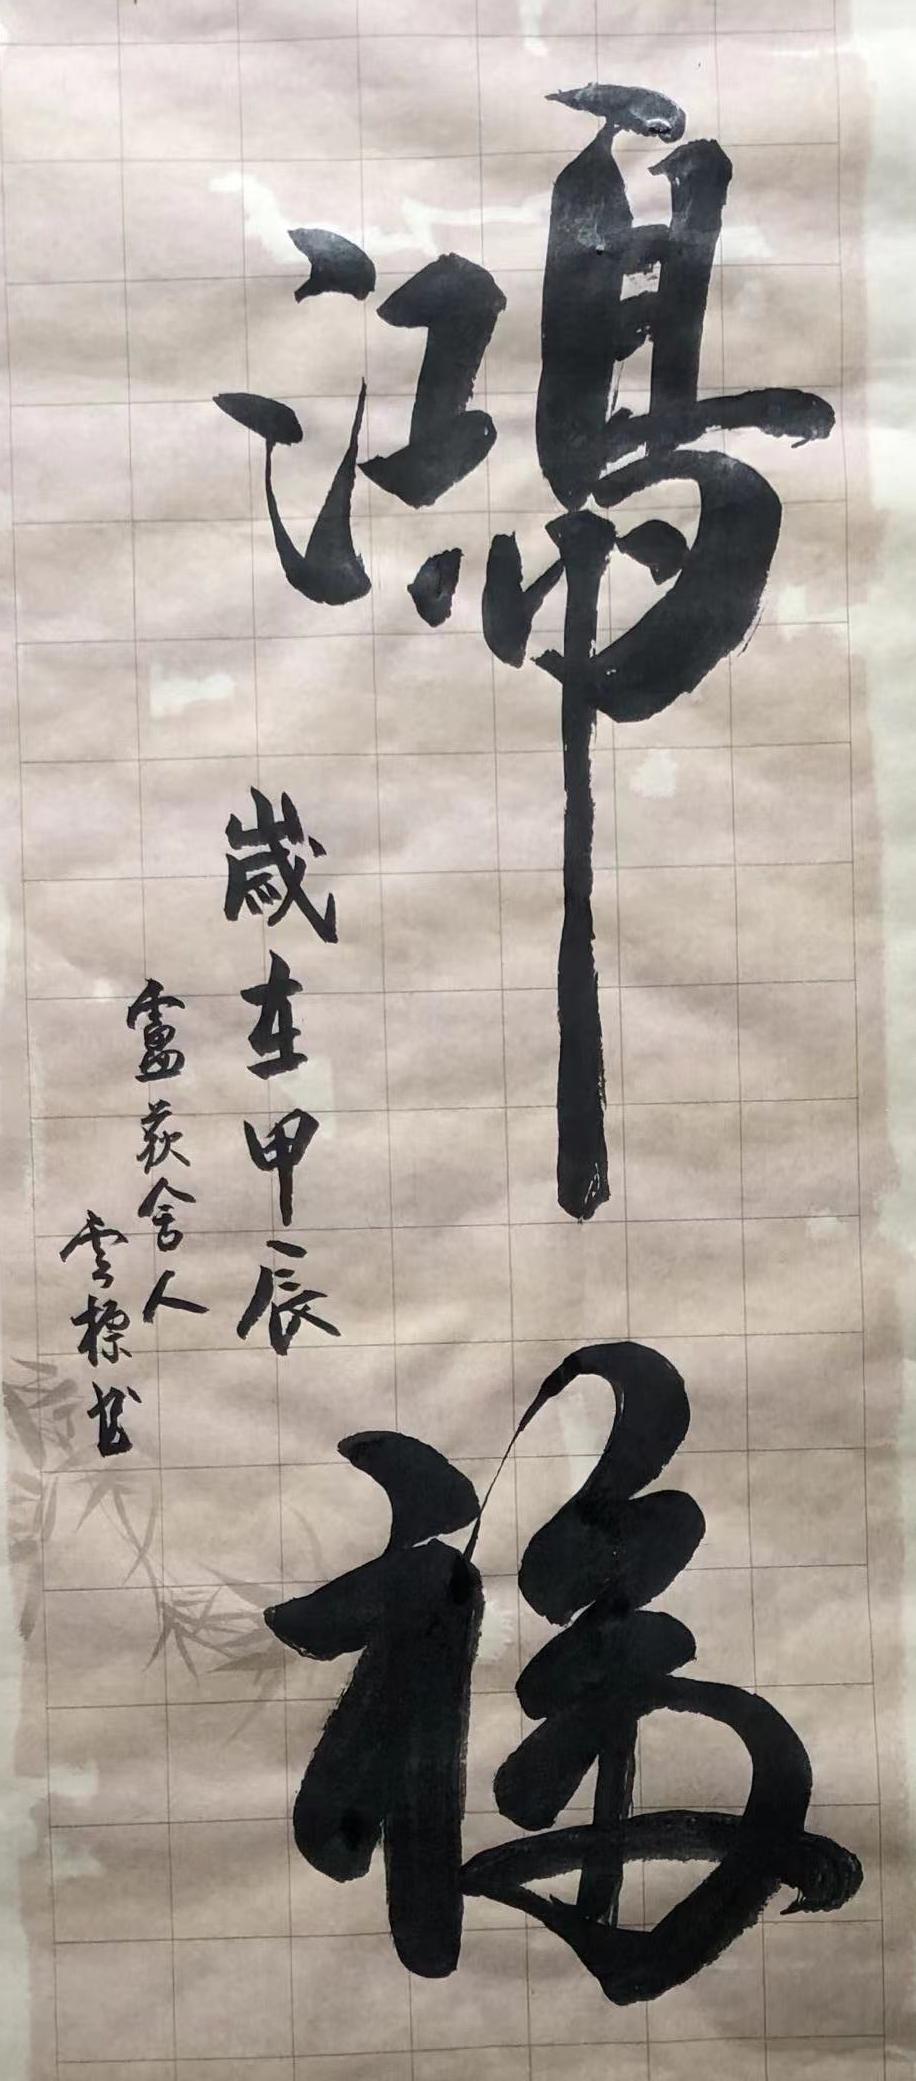 鴻福
歲在甲辰
盧荻舍人
雲標书